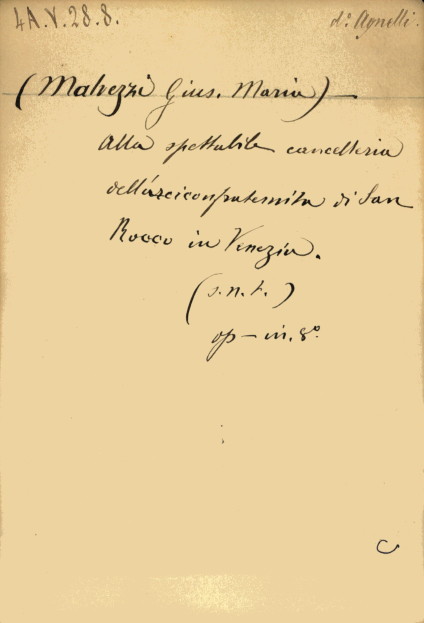 4A.V.28.8.
d.º Agnelli.
(Malvezzi Gius. Maria)—
Alla spettabile cancelleria
dell'arciconfraternita di San
Rocco in Venezia.
(s.n.t.)
op— in. 8º
C